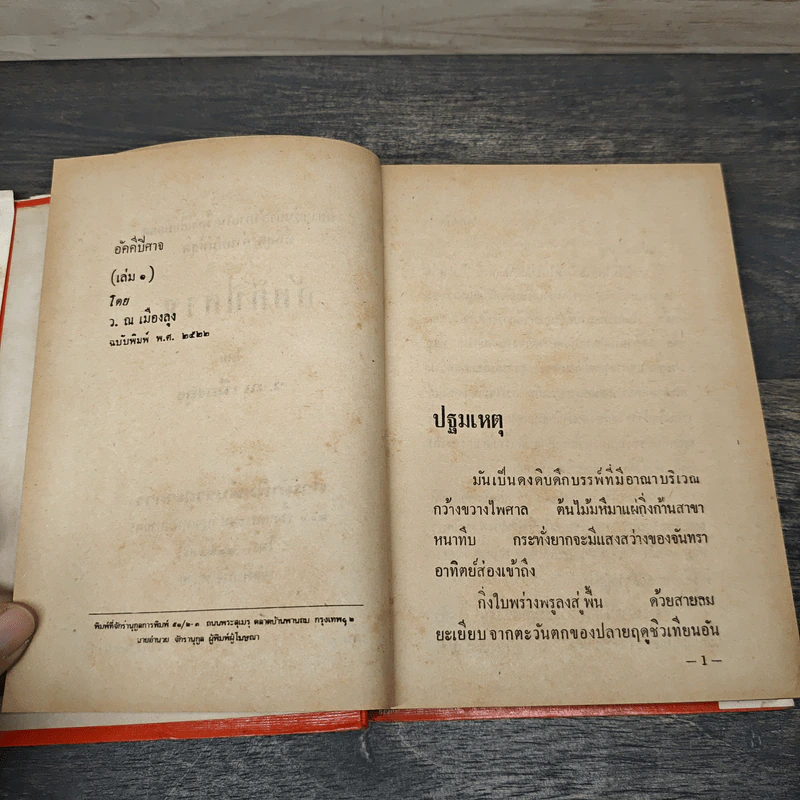 อัคคีปีศาจ
(เล่ม ๑)
โดย
ว. ณ เมืองลุง
ฉบับพิมพ์ พ.ศ. ๒๕๒๒
พิมพ์ที่จักรานุกูลการพิมพ์ ๕๑/๒-๓ ถนนพระสุเมรุ ตลาดบ้านพานถม กรุงเทพฯ ๒
นายอำนวย จักรานุกูล ผู้พิมพ์ผู้โฆษณา
ปฐมเหตุ
มันเป็นดงดิบดึกบรรพ์ที่มีอาณาบริเวณ
กว้างขวางไพศาล ต้นไม้มหึมาแผ่กิ่งก้านสาขา
หนาทึบ กระทั่งยากจะมีแสงสว่างของจันทรา
อาทิตย์ส่องเข้าถึง
กิ่งใบพร่างพรูลงสู่พื้น ด้วยสายลม
ยะเยียบ จากตะวันตกของปลายฤดูชิวเทียนอัน
— 1 —